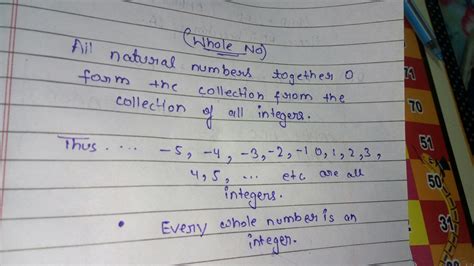 (Whole No)
All natural numbers together 0
form the collection from the
collection of all integers.
Thus .... -5, -4, -3, -2, -1 0, 1, 2, 3,
4, 5, ... etc are all
integers.
• Every whole number is an
integer.
71
70
51
50
31
30